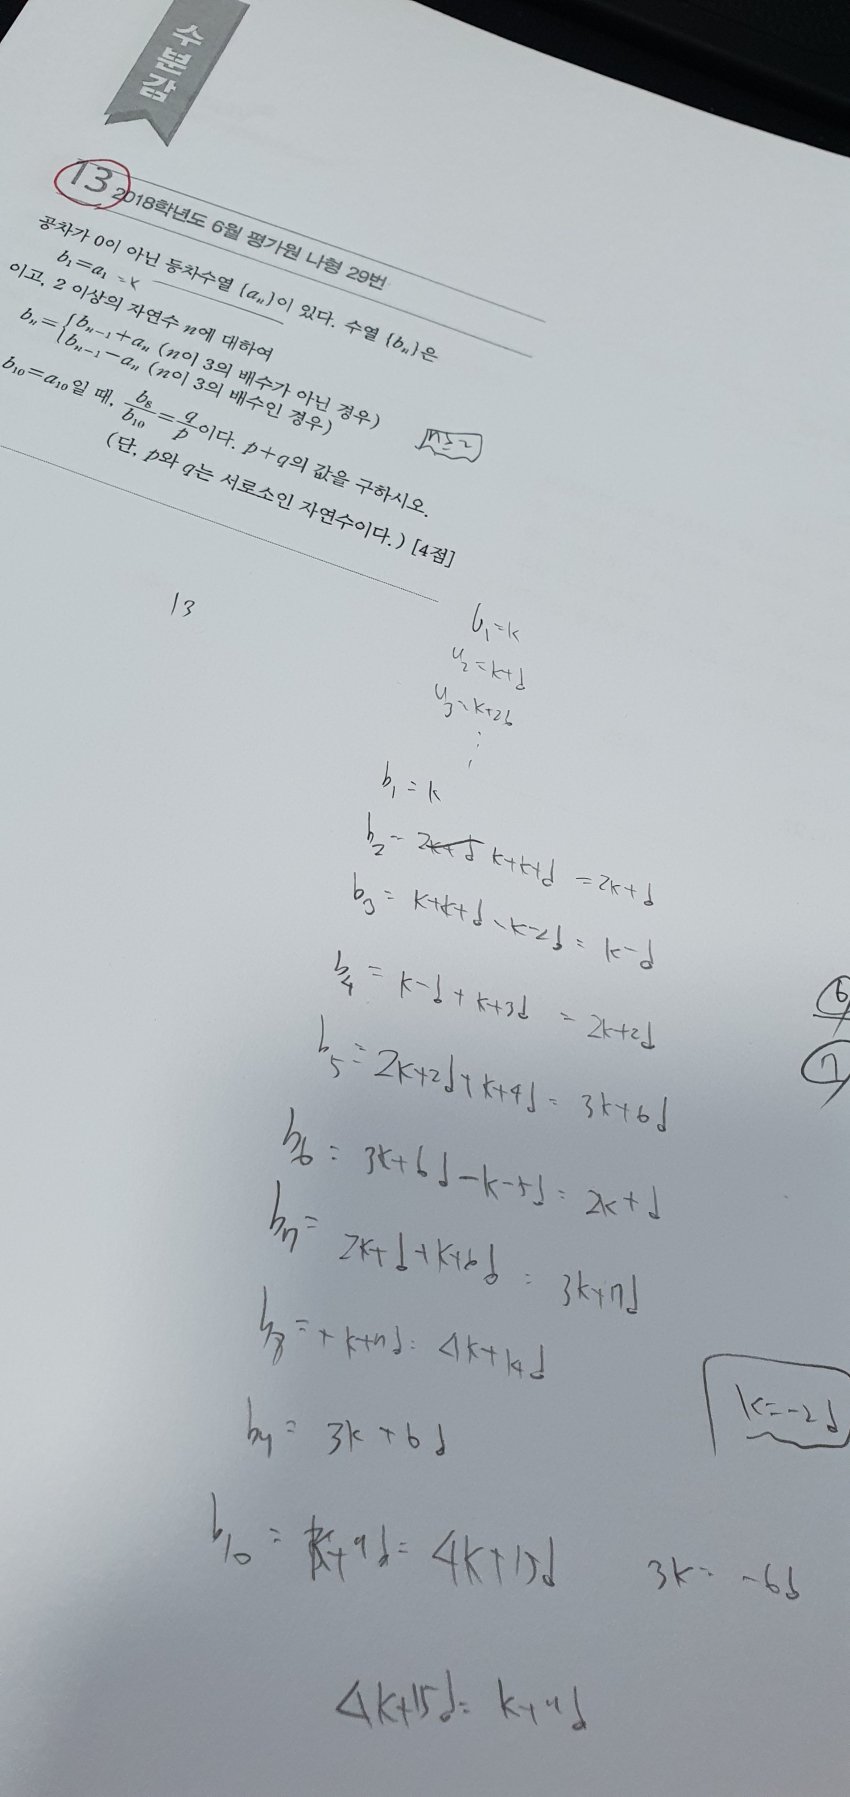 수분감
13 2018학년도 6월 평가원 나형 29번
공차가 0이 아닌 등차수열 {aₙ}이 있다. 수열 {bₙ}은
b₁=a₁ =k
이고, 2 이상의 자연수 n에 대하여
bₙ={bₙ₋₁+aₙ (n이 3의 배수가 아닌 경우)
bₙ₋₁-aₙ (n이 3의 배수인 경우)
b₁₀=a₁₀일 때, b₈/b₁₀=q/p이다. p+q의 값을 구하시오.
(단, p와 q는 서로소인 자연수이다.) [4점]
n≥2
13
b₁=k
₂=k+d
₃=k+2d
b₁=k
b₂= k+k+d =2k+d
b₃= k+k+d-k-2d= k-d
b₄= k-d+k+3d = 2k+2d
b₅= 2k+2d+k+4d= 3k+6d
b₆= 3k+6d-k-5d= 2k+d
b₇= 2k+d+k+6d= 3k+7d
b₈=+k+7d= 4k+14d
b₉= 3k+6d
b₁₀= k+9d= 4k+15d
3k=-6d
4k+15d= k+9d
k=-2d
⑥
⑦